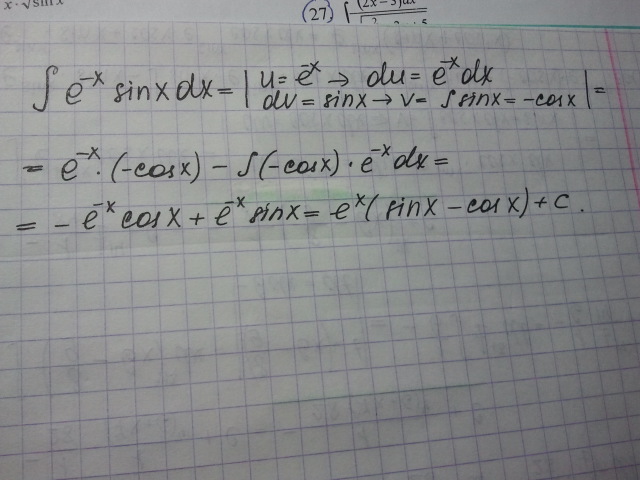 x · √sin x
(27) ∫ (2x-3)dx
∫ e^{-x} sinx dx = | u = e^{-x} → du = e^{-x} dx
dv = sinx → v = ∫ sinx = -cosx | =
= e^{-x} · (-cosx) - ∫ (-cosx) · e^{-x} dx =
= - e^{-x} cosx + e^{-x} sinx = -e^{x} ( sinx - cosx ) + c .